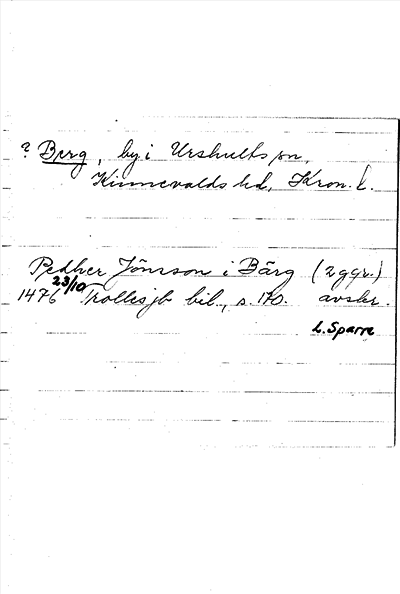 ? Berg, by i Urshults sn,
Kinnevalds hd, Kron. l.
Pedher Jönsson i Bärg (2 ggr.)
1476 23/10 Trolles jb bil., s. 170. avskr.
L. Sparre